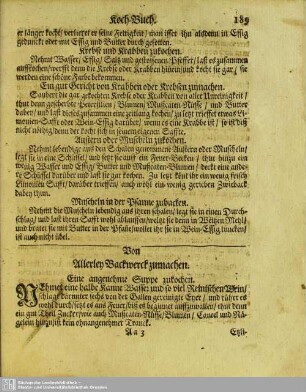 Koch-Buch. 189
er länger kocht/ verlieret er seine Fettigkeit/ man isset ihn alsdenn in Essig
gedunckt oder mit Essig und Butter durch gesotten.
Krebse und Krabben zukochen.
Nehmt Wasser/ Essig/ Saltz und gestossenen Pfeffer/ last es zusammen
auffkochen/ werfft denn die Krebse oder Krabben hinein/ und kocht sie gar/ sie
werden eine schöne Farbe bekommen.
Ein gut Gericht von Krabben oder Krebsen zumachen.
Säubert die gar gekochte Krebse oder Krabben von aller Unreinigkeit/
thut denn gescherbte Petersilien/ Blumen/ Muscaten-Nüsse/ und Butter
daher/ und last dieses zusammen eine zeitlang kochen/
nicht nöthig/ denn der kocht sich in seinem eigenen Saffte.
Austern oder Muscheln zukochen.
Nehmt lebendige aus den Schalen genommene Austern oder Muscheln/
legt sie in eine Schüssel/ und setzt sie auff ein Feuer-Becken/ thut hinzu ein
wenig Wasser und Essig/ Butter und Muscaten-Blumen/ deckt eine andere
Schüssel darüber und last sie gar kochen.
Limonien Safft/ darüber treuffen/ auch wohl ein wenig gerieben Zwieback
daben thun.
Muscheln in der Pfanne zubacken.
Nehmt die Muscheln lebendig aus ihren schalen/ legt sie in einen Durchschlag/
und last ihren Safft wohl ablauffen/ welzt sie denn in Weitzen Mehl/
und bratet sie mit Butter in der Pfanne/ wollet ihr sie in Wein-Essig tuncken/
ist auch nicht übel.
Von
Allerley Backwerck zumachen.
Eine angenehme Suppe zukochen.
Nehmet eine halbe Kanne Wasser und so viel Rehnischen Wein/
schlagt darunter sechs von der Gallen gereinigte Eyer/ und rühret es
wohl durch/ setzt es aus Feuer/ biß es beginnet auffzuwallen/ thut denn
ein gut Theil Zucker/ wie auch Muscaten-Nüsse/ Blumen/ Caneel und Nägelein
hinzu/ ist kein ohnangenehmer Tranck.
Aa 3